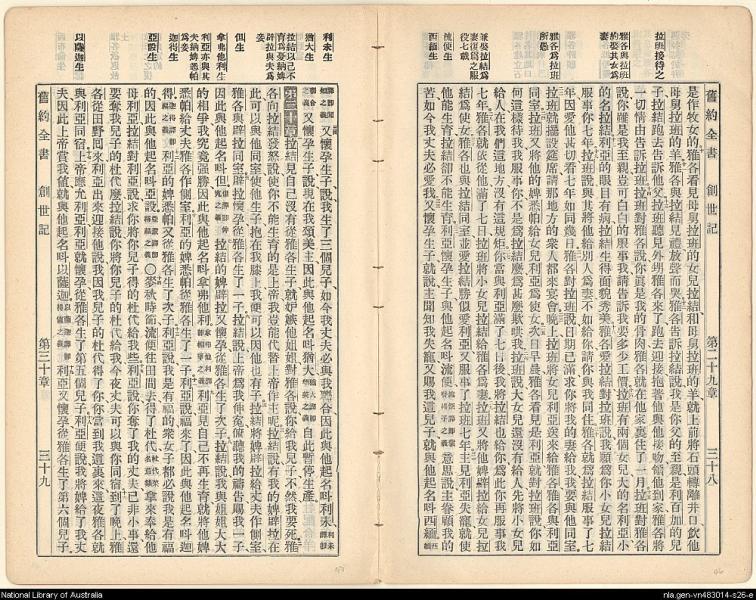 舊約全書 創世記 第二十九章 三十八
拉班接待之
雅各與拉班約娶其女為妻
雅各為拉班所愚
兼娶拉結為妻復為之服役七載
流便生
西緬生
是作牧女的雅各看見母舅拉班的女兒拉結和母舅拉班的羊就上前將石頭轉離井口飲他
母舅拉班的羊雅各與拉結見禮放聲而哭雅各告訴拉結說我是你父的至親是利百加的兒
子拉結跑去告訴他父拉班聽見外甥雅各來了跑去迎接抱著他與他接吻領他到家雅各將
一切情由告訴拉班拉班對雅各說你真是我的骨肉雅各就在他家裏住了一月拉班對雅各
說你雖是我至親豈可白白的服事我請告訴我要多少工價拉班有兩個女兒大的名利亞小
的名拉結利亞的眼目有病拉結生得面貌秀美雅各愛拉結對拉班說我願為你小女兒拉結
服事你七年拉班說與其將他給別人為妻不如給你請你與我同住雅各就為拉結服事了七
年因愛他甚切看七年如同幾日雅各對拉班說日期已滿求你將我的妻給我我要與他同室
拉班就擺設筵席請那地方的衆人都來宴會晚上拉班將女兒利亞送來給雅各雅各與利亞
同室拉班又將他的婢悉帕給女兒利亞為使女次日早晨雅各看見是利亞就對拉班說你如
何這樣待我我服事你不是為拉結麼為甚麼欺哄我拉班說大女兒還沒有給人先將小女兒
給人在我們這地方沒有這規矩你當與利亞滿了七日後我將拉結也給你為此你再服事我
七年雅各就依從他滿了七日拉班將小女兒拉結給雅各為妻拉班又將他婢辟拉給女兒拉
結為使女雅各也與拉結同室並愛拉結勝似愛利亞又服事了拉班七年主見利亞失寵就使
他能生育拉結卻不能生育利亞懷孕生子與他起名叫流便意思說主眷顧我的
苦如今我丈夫必愛我又懷孕生子就說主聞知我失寵又賜我這兒子就與他起名叫西緬
利未生
猶大生
拉結以己不育為憂給婢辟拉與夫為妾
但生
拿弗他利生
利亞亦與其夫給婢悉帕為妾
迦得生
亞設生
以薩迦生
又懷孕生子說我生了三個兒子如今我丈夫必與我聯合因此與他起名叫利未
又懷孕生子說現在我頌美主因此與他起名叫猶大自此暫停生產
第三十章拉結見自己沒有從雅各生子就妒嫉他姐姐對雅各說你給我兒子不然我要死雅
各向拉結發怒說使你不能生育的是上帝我豈能代替上帝作主呢拉結說有我的婢辟拉在
此可以與他同室使他生子抱在我膝上我便可以因他也有子拉結將婢辟拉給丈夫作側室
雅各與辟拉同室辟拉懷孕從雅各生了一子拉結說上帝為我伸冤俯聽我的禱告賜我一子
因此與他起名叫但拉結的婢辟拉又懷孕從雅各生了次子拉結說我與姐姐大大
的相爭我究竟強勝因此與他起名叫拿弗他利利亞見自己不再生育就將他婢
悉帕給丈夫雅各作側室利亞的婢悉帕從雅各生了一子利亞說福來了因此與他起名叫迦
得利亞的婢悉帕又從雅各生了次子利亞說我是有福的衆女子都必說我是有福
的因此與他起名叫亞設○麥秋時節流便往田間去得了杜代拿來奉給他
母利亞拉結對利亞說求你將你兒子得的杜代給我些利亞說你奪了我的丈夫已非小事還
要奪我兒子的杜代麼拉結說你將你兒子的杜代給我今夜丈夫可以與你同宿到了晚上雅
各從田野回來利亞出來迎接他說我因我兒子的杜代得了你你當到我這裏來這夜雅各就
與利亞同宿上帝應允利亞利亞就懷孕從雅各生了第五個兒子利亞便說我將婢給了我丈
夫因此上帝賞我值就與他起名叫以薩迦利亞又懷孕從雅各生了第六個兒子
舊約全書 創世記 第三十章 三十九
National Library of Australia
nla.gen-vn483014-s26-e